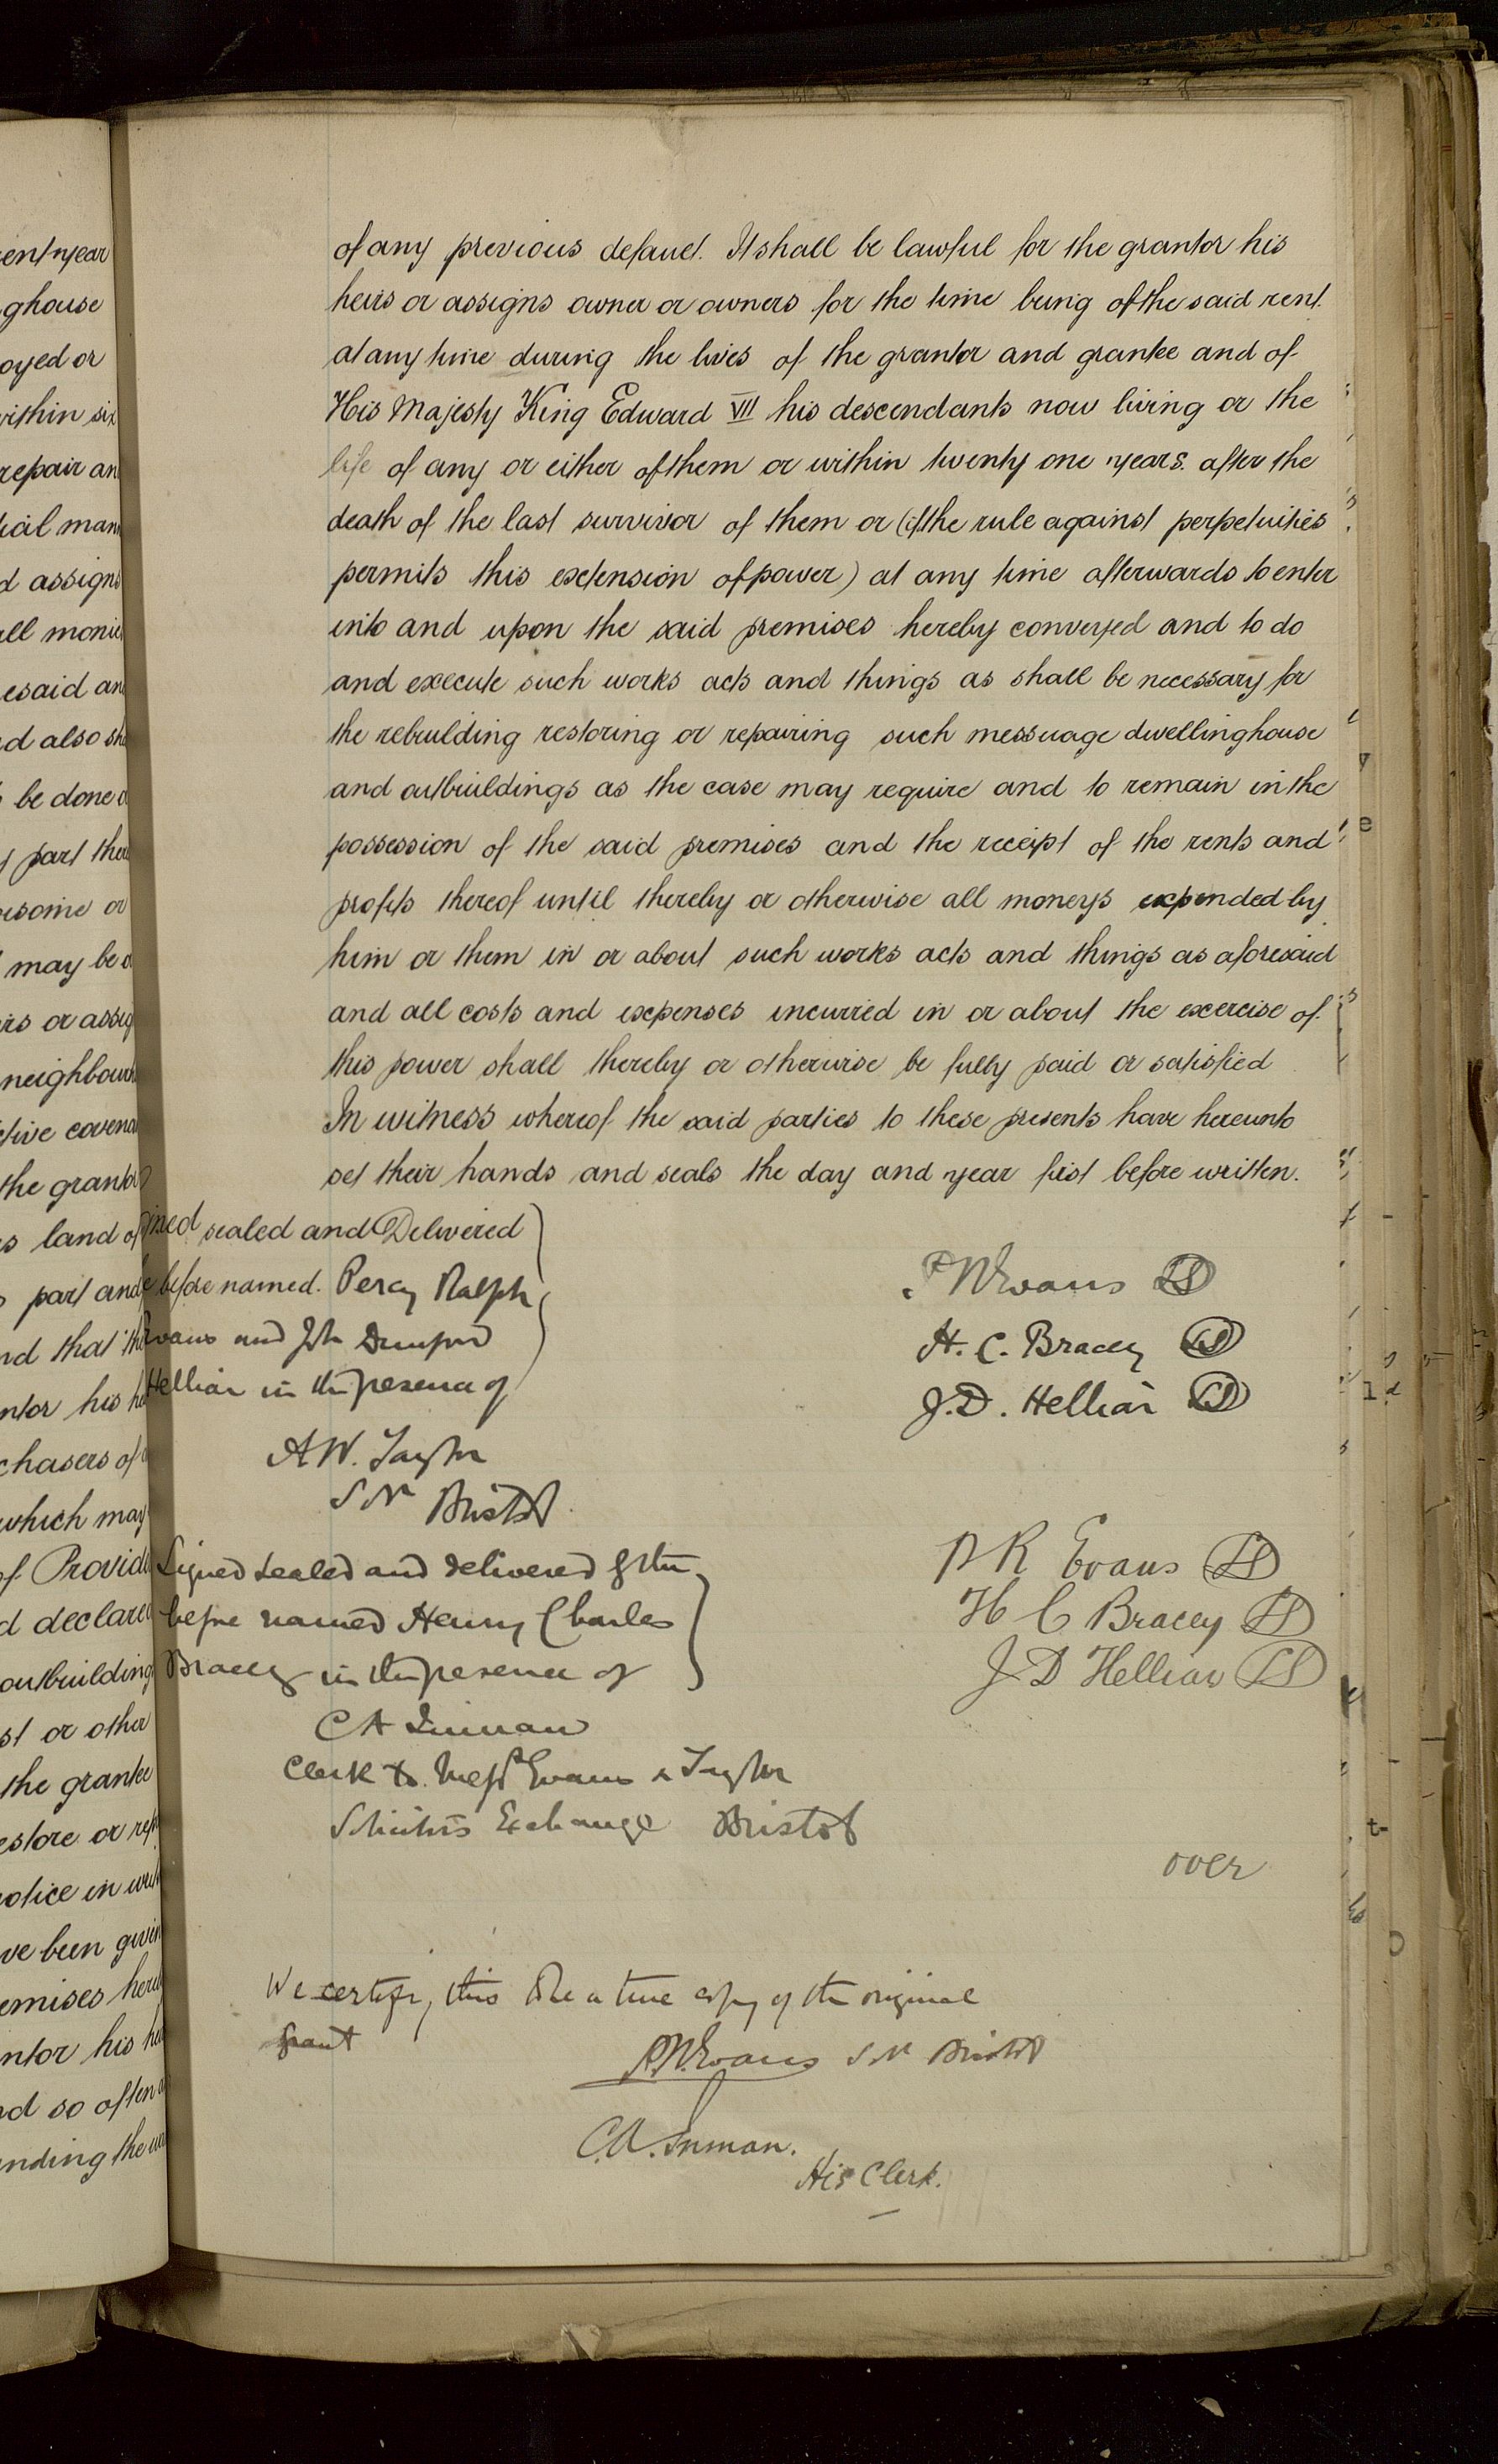 of any previous default. It shall be lawful for the grantor his
heirs or assigns owner or owners for the time being of the said rent
at any time during the lives of the grantor and grantee and of
His Majesty King Edward VII his descendants now living or the
life of any or either of them or within twenty one years after the
death of the last survivor of them or (if the rule against perpetuities
permits this extension of power) at any time afterwards to enter
into and upon the said premises hereby conveyed and to do
and execute such works acts and things as shall be necessary for
the rebuilding restoring or repairing such messuage dwellinghouse
and outbuildings as the case may require and to remain in the
possession of the said premises and the receipt of the rents and
profits thereof until thereby or otherwise all moneys expended by
him or them in or about such works acts and things as aforesaid
and all costs and expenses incurred in or about the exercise of
this power shall thereby or otherwise be fully paid or satisfied
In witness whereof the said parties to these presents have hereunto
set their hands and seals the day and year first before written.
sealed and Delivered
before named. Percy Ralph
Evans and Jn Dampier
Helliar in the presence of
A W. Taylor
Sr Bristol
Evans LS
H. C. Bracey LS
J. D. Helliar LS
Signed sealed and delivered by the
before named Henry Charles
Bracey in the presence of
C A Inman
Clerk to Messrs Evans & Taylor
Solicitors Exchange Bristol
P R Evans LS
H C Bracey LS
J D Helliar LS
over
We certify this to be a true copy of the original
grant
Evans Sr Bristol
C.A. Inman.
His Clerk.
ent year
ghouse
oyed or
within six
repair an
tial man
d assigns
all monie
esaid an
d also sh
be done
part ther
esome or
may be
irs or assig
neighbour
ctive covena
the grantor
s land of
part and
nd that the
ntor his he
chasers of
which may
of Provid
d declared
outbuilding
st or other
the grantee
estore or rep
notice in writ
ve been given
emises here
ntor his he
nd so often
nding the